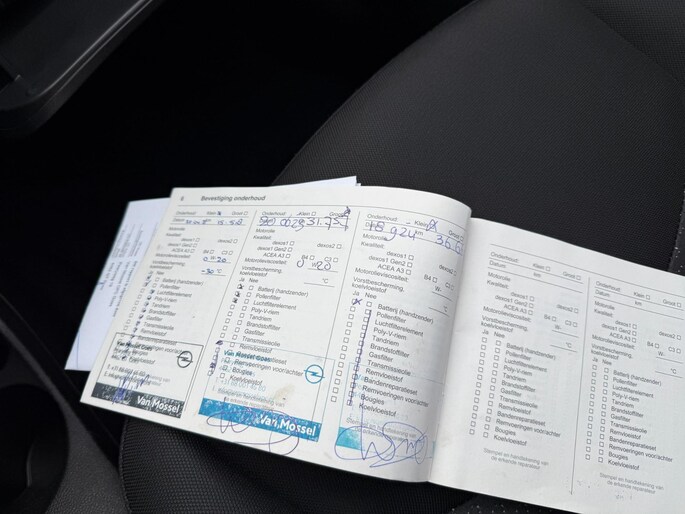 6 Bevestiging onderhoud
Onderhoud: Klein Groot
Datum km
Motorolie
Kwaliteit:
dexos1 dexos2
dexos1 Gen2
ACEA A3 B4 C3
Motorolieviscositeit: 0 W- 20
Vorstbescherming,
koelvloeistof -30 °C
Ja Nee
Batterij (handzender)
Pollenfilter
Luchtfilterelement
Poly-V-riem
Tandriem
Brandstoffilter
Gasfilter
Transmissieolie
Remvloeistof
Van Mossel Goes
Van Mossel
Onderhoud: Klein Groot
31.757
Motorolie
Kwaliteit:
dexos1 dexos2
dexos1 Gen2
ACEA A3 B4 C3
Motorolieviscositeit: 0 W- 20
Vorstbescherming,
koelvloeistof °C
Ja Nee
Batterij (handzender)
Pollenfilter
Luchtfilterelement
Poly-V-riem
Tandriem
Brandstoffilter
Gasfilter
Transmissieolie
Remvloeistof
Van Mossel Goes
Koelvloeistof
Van Mossel
Onderhoud: Klein Groot
18 9 24 km
Motorolie
Kwaliteit:
dexos1 dexos2
dexos1 Gen2
ACEA A3 B4 C3
Motorolieviscositeit: W-
Vorstbescherming,
koelvloeistof °C
Ja Nee
Batterij (handzender)
Pollenfilter
Luchtfilterelement
Poly-V-riem
Tandriem
Brandstoffilter
Gasfilter
Transmissieolie
Remvloeistof
Bandenreparatieset
Remvoeringen voor/achter
Bougies
Koelvloeistof
Onderhoud: Klein Groot
Datum km
Motorolie
Kwaliteit:
dexos1 dexos2
dexos1 Gen2
ACEA A3 B4 C3
Motorolieviscositeit: W-
Vorstbescherming,
koelvloeistof °C
Ja Nee
Batterij (handzender)
Pollenfilter
Luchtfilterelement
Poly-V-riem
Tandriem
Brandstoffilter
Gasfilter
Transmissieolie
Remvloeistof
Bandenreparatieset
Remvoeringen voor/achter
Bougies
Koelvloeistof
Stempel en handtekening van
de erkende reparateur
Onderhoud: Klein Groot
Datum km
Motorolie
Kwaliteit:
dexos1 dexos2
dexos1 Gen2
ACEA A3 B4 C3
Motorolieviscositeit: W-
Vorstbescherming,
koelvloeistof °C
Ja Nee
Batterij (handzender)
Pollenfilter
Luchtfilterelement
Poly-V-riem
Tandriem
Brandstoffilter
Gasfilter
Transmissieolie
Remvloeistof
Bandenreparatieset
Remvoeringen voor/achter
Bougies
Koelvloeistof
Stempel en handtekening van
de erkende reparateur